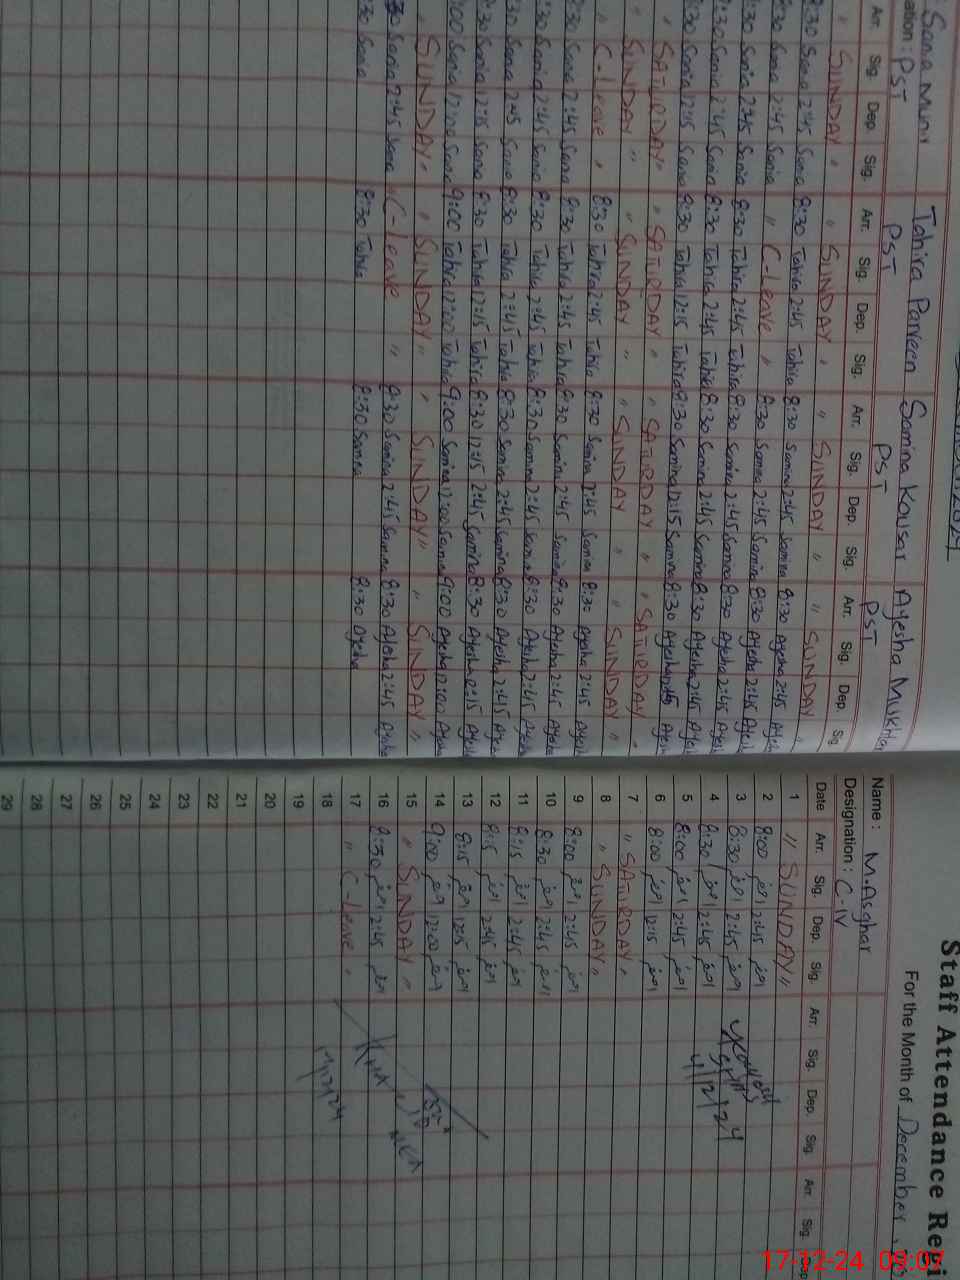 Sana Munir Tahira Parveen Samina Kousar Ayesha Mukhtar
ation : PST PST PST PST
Arr. Sig. Dep. Sig. Arr. Sig. Dep. Sig. Arr. Sig. Dep. Sig. Arr. Sig. Dep. Sig.
" SUNDAY " " SUNDAY " " SUNDAY " " SUNDAY "
8:30 Sana 2:45 Sana 8:30 Tahira 2:45 Tahira 8:30 Samina 2:45 Samina 8:30 Ayesha 2:45 Ayesha
8:30 Sana 2:45 Sana " C-Leave " 8:30 Samina 2:45 Samina 8:30 Ayesha 2:45 Ayesha
8:30 Sana 2:45 Sana 8:30 Tahira 2:45 Tahira 8:30 Samina 2:45 Samina 8:30 Ayesha 2:45 Ayesha
8:30 Sana 2:45 Sana 8:30 Tahira 2:45 Tahira 8:30 Samina 2:45 Samina 8:30 Ayesha 2:45 Ayesha
8:30 Sana 12:15 Sana 8:30 Tahira 12:15 Tahira 8:30 Samina 12:15 Samina 8:30 Ayesha Ayesha
" SATURDAY " " SATURDAY " " SATURDAY " " SATURDAY "
" SUNDAY " " SUNDAY " " SUNDAY " " SUNDAY "
" C-Leave " 8:30 Tahira 2:45 Tahira 8:30 Samina 2:45 Samina 8:30 Ayesha 2:45 Ayesha
8:30 Sana 2:45 Sana 8:30 Tahira 2:45 Tahira 8:30 Samina 2:45 Samina 8:30 Ayesha 2:45 Ayesha
8:30 Sana 2:45 Sana 8:30 Tahira 2:45 Tahira 8:30 Samina 2:45 Samina 8:30 Ayesha 2:45 Ayesha
8:30 Sana 2:45 Sana 8:30 Tahira 2:45 Tahira 8:30 Samina 2:45 Samina 8:30 Ayesha 2:45 Ayesha
8:30 Sana 12:15 Sana 8:30 Tahira 12:15 Tahira 8:30 12:15 2:45 Samina 8:30 Ayesha 12:15 Ayesha
9:00 Sana 12:00 Sana 9:00 Tahira 12:00 Tahira 9:00 Samina 12:00 Samina 9:00 Ayesha 12:00 Ayesha
" SUNDAY " " SUNDAY " " SUNDAY " " SUNDAY "
8:30 Sana 2:45 Sana " C-Leave " 8:30 Samina 2:45 Samina 8:30 Ayesha 2:45 Ayesha
8:30 Sana 8:30 Tahira 8:30 Samina 8:30 Ayesha
Staff Attendance Regi
For the Month of December
Name : M.Asghar
Designation : C-IV
Date Arr. Sig. Dep. Sig. Arr. Sig. Dep. Sig. Arr. Sig. Dep
1 " SUNDAY "
2 8:00 2:45
3 8:30 2:45
4 8:30 2:45
5 8:00 2:45
6 8:00 12:15
7 " SATURDAY "
8 " SUNDAY "
9 8:00 2:45
10 8:30 2:45
11 8:15 2:45
12 8:15 2:45
13 8:15 12:15
14 9:00 12:00
15 " SUNDAY "
16 8:30 2:45
17 " C-Leave "
18
19
20
21
22
23
24
25
26
27
28
29
4/12/24
17-12-24 09:07